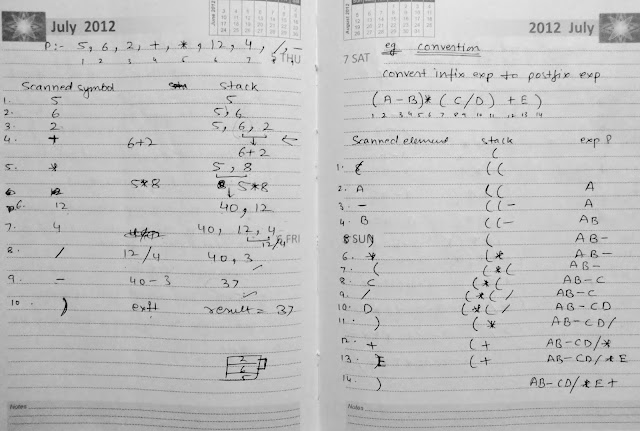 July 2012
P:- 5, 6, 2, +, *, 12, 4, /, -
1 2 3 4 5 6 7 8
5 THU
Scanned symbol Stack
1. 5 5
2. 6 5, 6
3. 2 5, 6, 2
4. + 6+2 ←
6+2
5. * 5, 8
5*8 5*8
6. 12 40, 12
7. 4 40, 12, 4
12/4
6 FRI
8. / 12/4 40, 3
9. - 40-3 37
10. ) exit result = 37
2
6
5
Notes
2012 July
7 SAT
eg convention
convert infix exp to postfix exp
(A-B)*(C/D)+E)
1 2 3 4 5 6 7 8 9 10 11 12 13 14
Scanned element stack exp P
(
1. ( ((
2. A (( A
3. - ((- A
4. B ((- AB
8 SUN
5. ) ( AB-
6. * (* AB-
7. ( (*( AB-
8. C (*( AB-C
9. / (*(/ AB-C
10. D (*(/ AB-CD
11. ) (* AB-CD/
12. + (+ AB-CD/*
13. E (+ AB-CD/*E
14. ) AB-CD/*E+
Notes